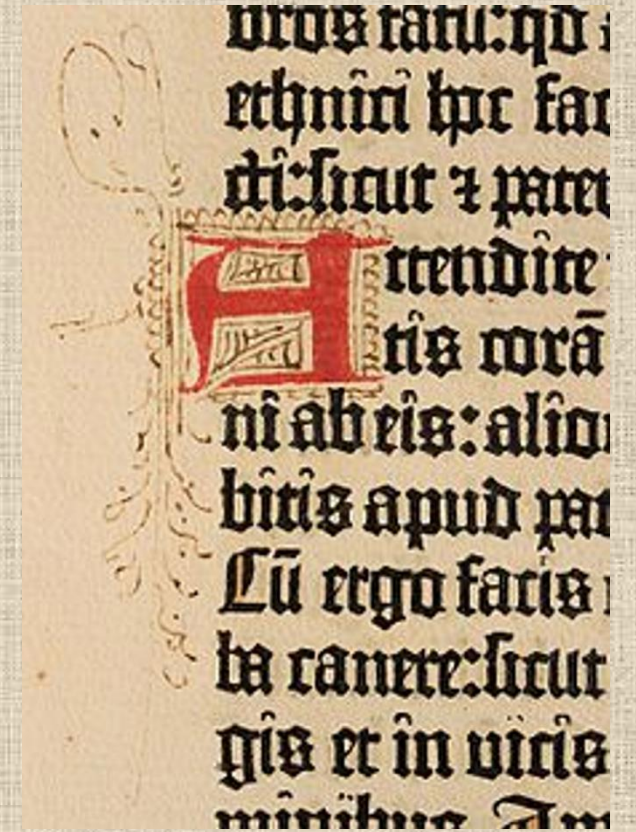 vros tātū:qd
ethnici hoc fac
cti:sicut ⁊ pater
Attendite
tis corā
ni ab eis:alio
bitis apud pat
Cū ergo facis
ba canere:sicut
gis et in vicis
minibus. Am